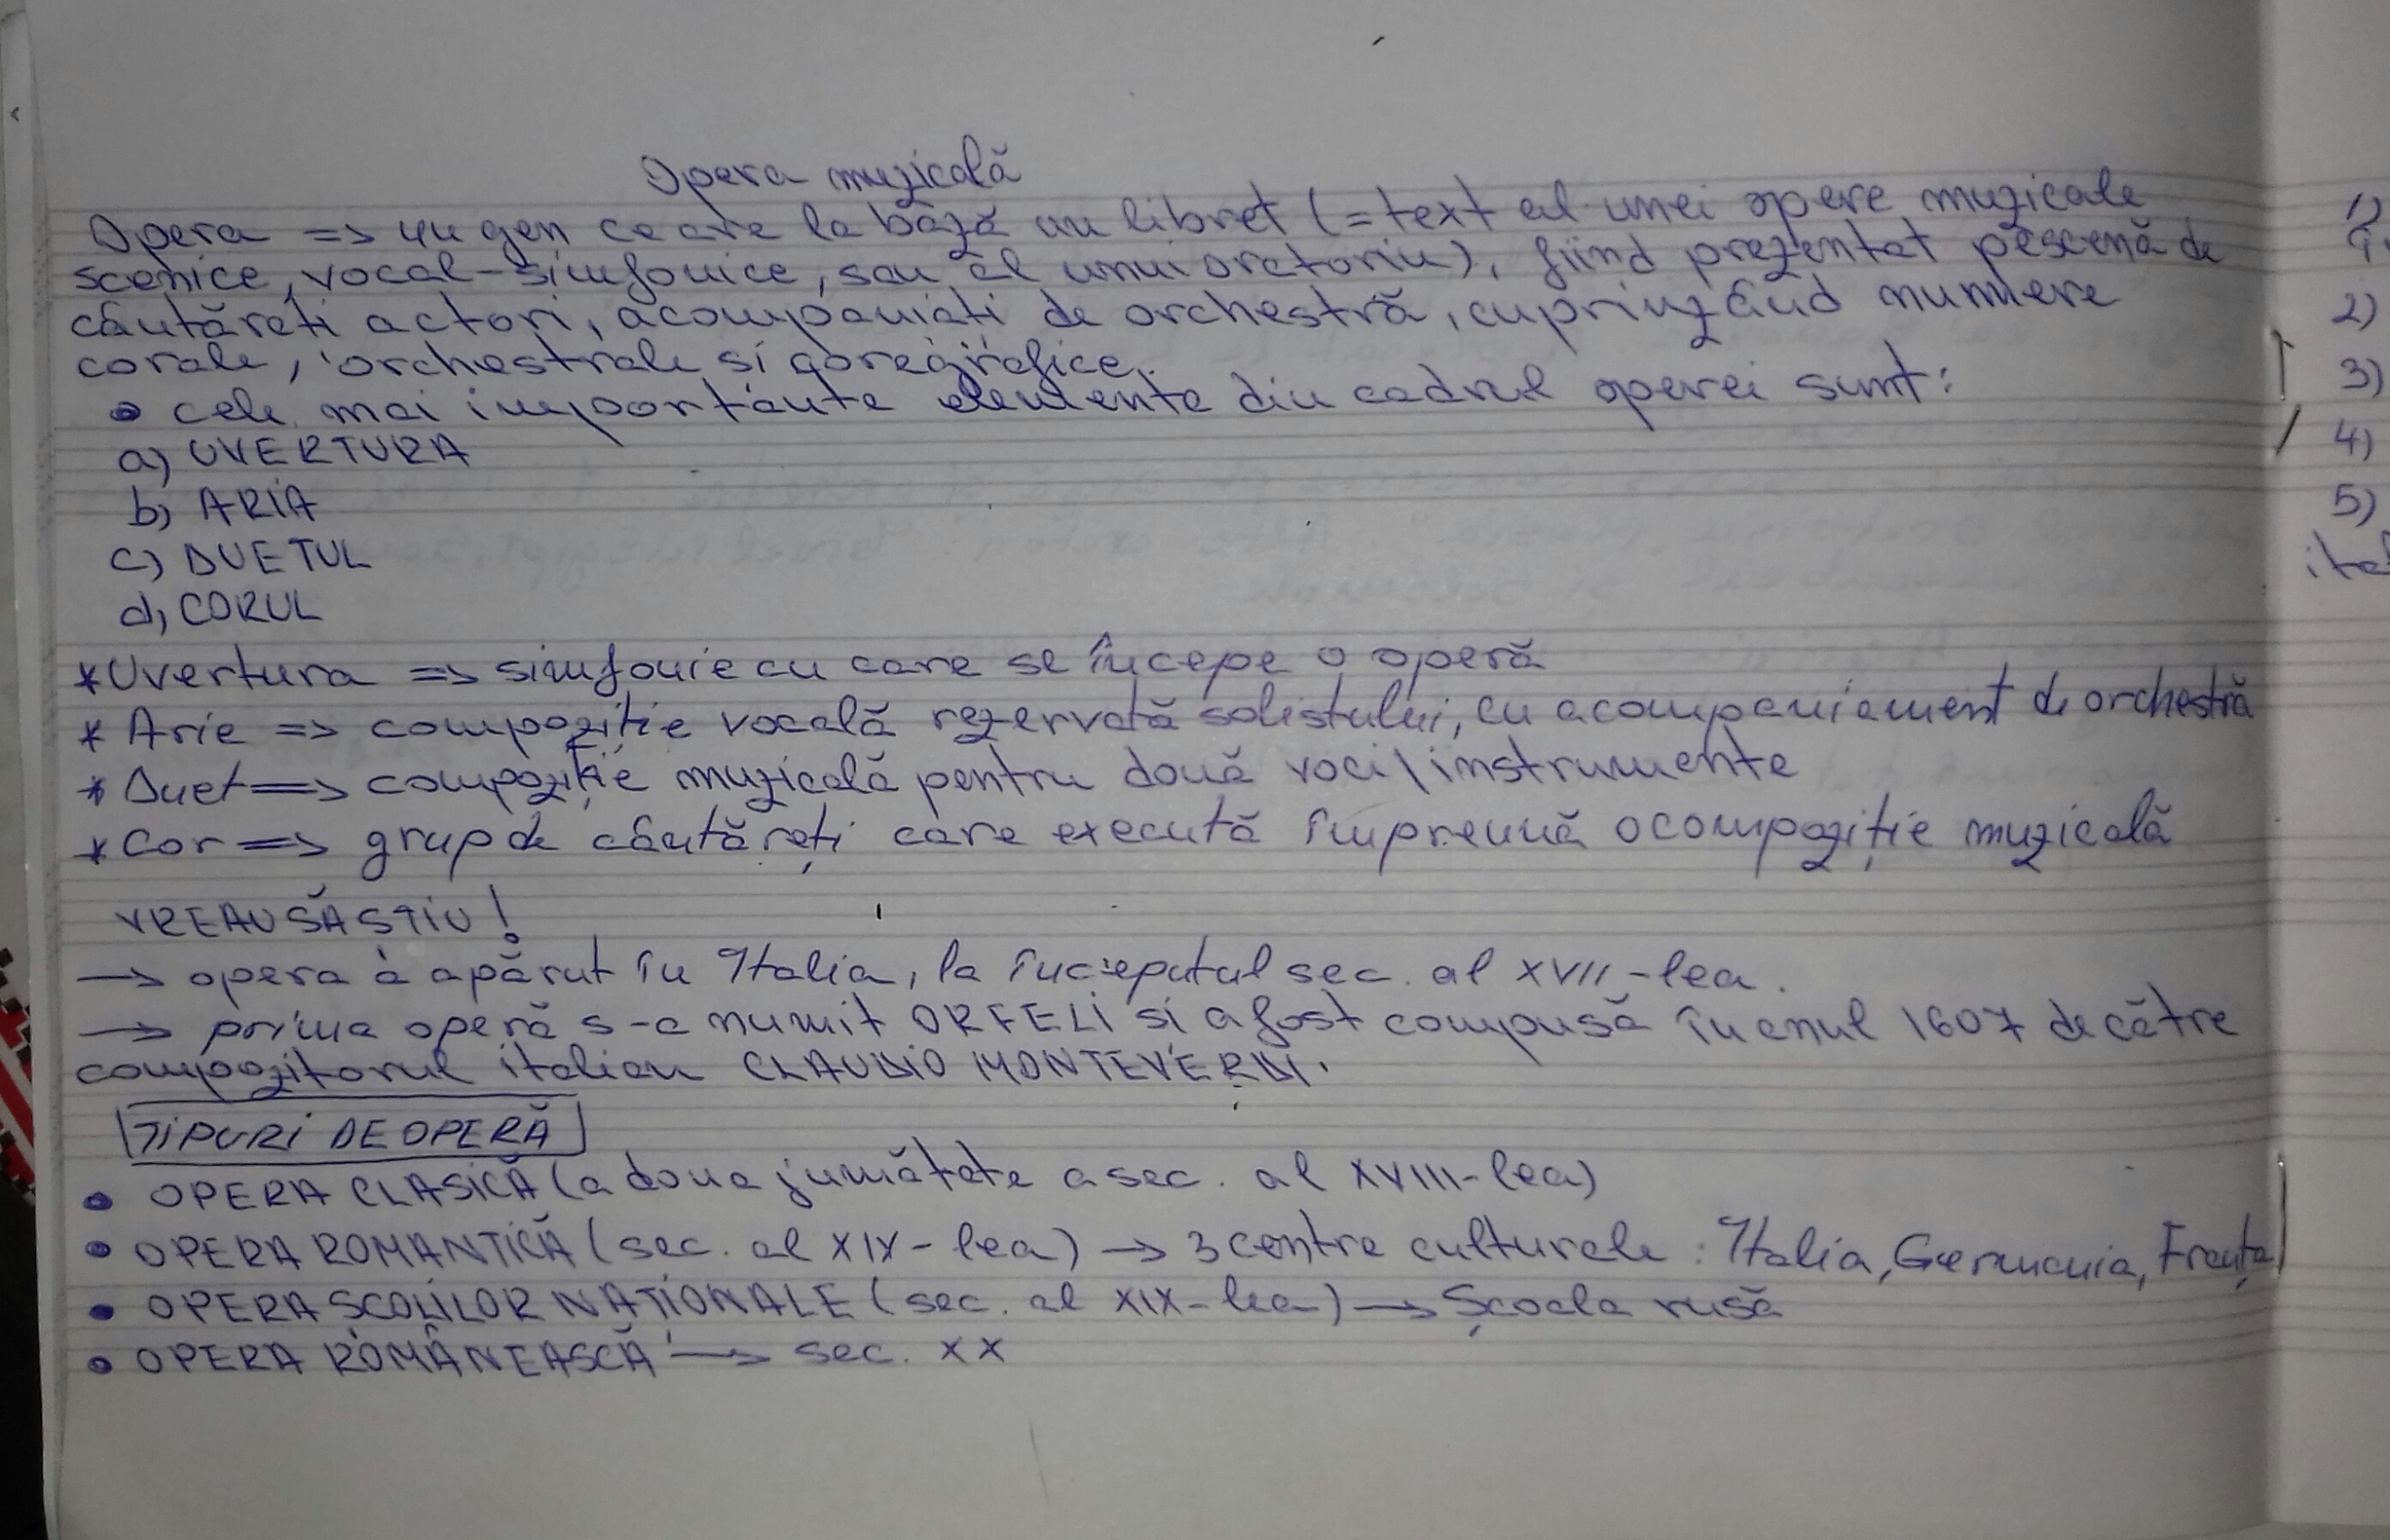 Opera muzicală
Opera => un gen ce are la bază un libret (= text al unei opere muzicale
scenice, vocal-simfonice, sau al unui oratoriu), fiind prezentat pe scenă de
cântăreți actori, acompaniați de orchestră, cuprinzând numere
corale, orchestrale si coregrafice.
• cele mai importante elemente din cadrul operei sunt:
a) UVERTURA
b) ARIA
c) DUETUL
d) CORUL
*Uvertura => simfonie cu care se începe o operă
* Arie => compoziție vocală rezervată solistului, cu acompaniament de orchestră
* Duet => compoziție muzicală pentru două voci\instrumente
* Cor => grup de cântăreți care execută împreună o compoziție muzicală
VREAU SĂ ȘTIU!
→ opera a apărut în Italia, la începutul sec. al XVII-lea.
→ prima operă s-a numit ORFEU și a fost compusă în anul 1607 de către
compozitorul italian CLAUDIO MONTEVERDI.
TIPURI DE OPERĂ
• OPERA CLASICĂ (a doua jumătate a sec. al XVIII-lea)
• OPERA ROMANTICĂ (sec. al XIX-lea) → 3 centre culturale: Italia, Germania, Franța
• OPERA ȘCOLILOR NAȚIONALE (sec. al XIX-lea) → Școala rusă
• OPERA ROMÂNEASCĂ → sec. XX
1)
2)
3)
4)
5)